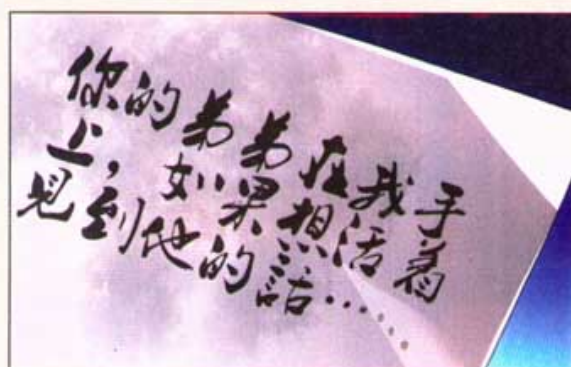 你的弟弟在我手
上，如果想活着
見到他的話……